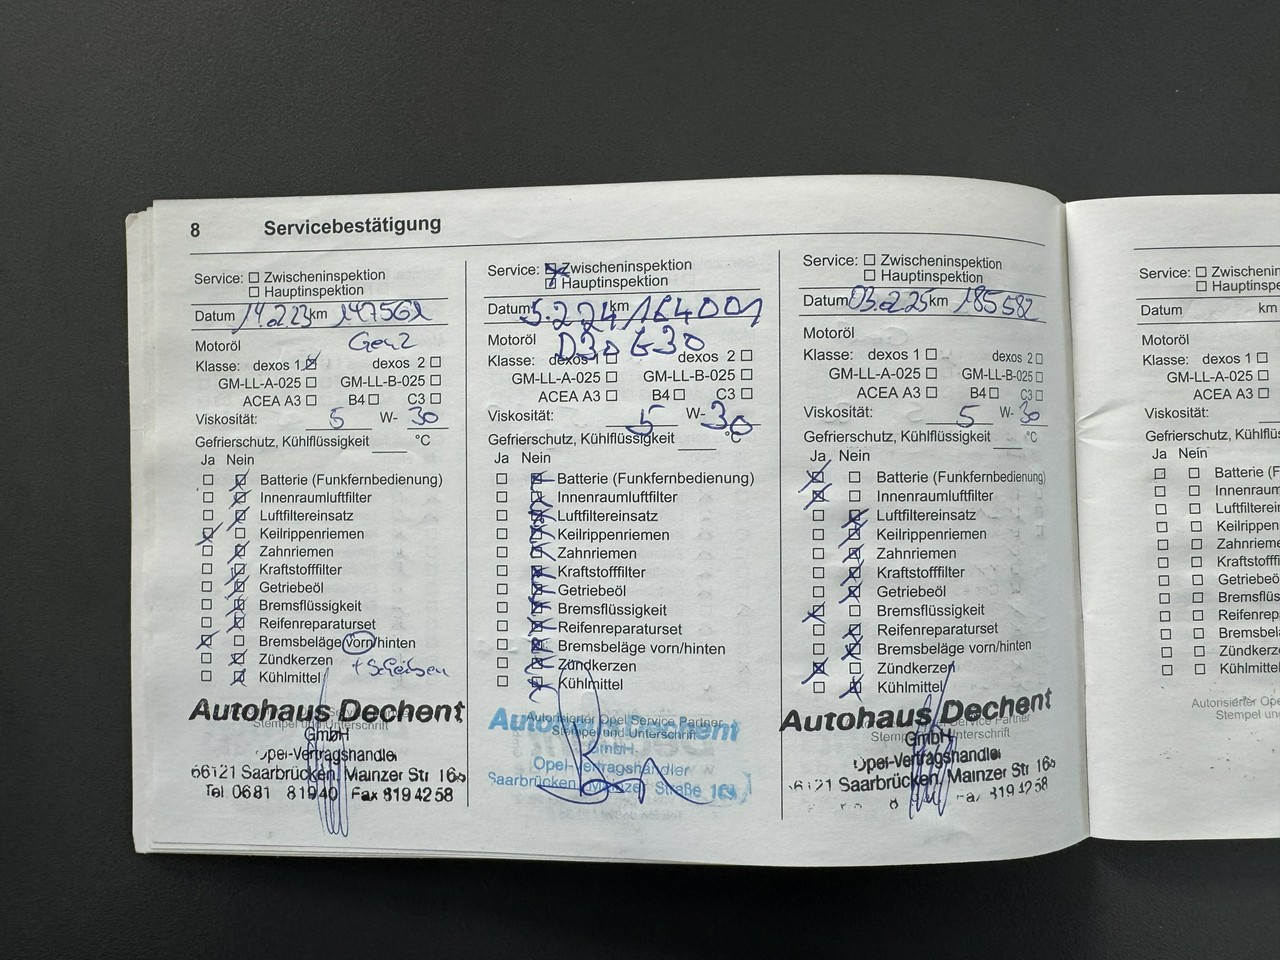 8 Servicebestätigung
Service: Zwischeninspektion
Hauptinspektion
Datum 14.2.23 km 147562
Motoröl Gen2
Klasse: dexos 1 dexos 2
GM-LL-A-025 GM-LL-B-025
ACEA A3 B4 C3
Viskosität: 5 W- 30
Gefrierschutz, Kühlflüssigkeit °C
Ja Nein
Batterie (Funkfernbedienung)
Innenraumluftfilter
Luftfiltereinsatz
Keilrippenriemen
Zahnriemen
Kraftstofffilter
Getriebeöl
Bremsflüssigkeit
Reifenreparaturset
Bremsbeläge vorn/hinten
Zündkerzen + Scheiben
Kühlmittel
Autohaus Dechent
Stempel und Unterschrift
GmbH
Opel-Vertragshändler
66121 Saarbrücken, Mainzer Str 168
Tel 0681 81940 Fax 8194258
Service: Zwischeninspektion
Hauptinspektion
Datum 5.2.24 km 164001
Motoröl D30 G30
Klasse: dexos 1 dexos 2
GM-LL-A-025 GM-LL-B-025
ACEA A3 B4 C3
Viskosität: 5 W- 30
Gefrierschutz, Kühlflüssigkeit °C
Ja Nein
Batterie (Funkfernbedienung)
Innenraumluftfilter
Luftfiltereinsatz
Keilrippenriemen
Zahnriemen
Kraftstofffilter
Getriebeöl
Bremsflüssigkeit
Reifenreparaturset
Bremsbeläge vorn/hinten
Zündkerzen
Kühlmittel
Autorisierter Opel Service Partner
Autohaus Dechent
Stempel und Unterschrift
GmbH
Opel-Vertragshändler
Saarbrücken, Mainzer Straße 168
Service: Zwischeninspektion
Hauptinspektion
Datum 03.02.25 km 185582
Motoröl
Klasse: dexos 1 dexos 2
GM-LL-A-025 GM-LL-B-025
ACEA A3 B4 C3
Viskosität: 5 W- 30
Gefrierschutz, Kühlflüssigkeit °C
Ja Nein
Batterie (Funkfernbedienung)
Innenraumluftfilter
Luftfiltereinsatz
Keilrippenriemen
Zahnriemen
Kraftstofffilter
Getriebeöl
Bremsflüssigkeit
Reifenreparaturset
Bremsbeläge vorn/hinten
Zündkerzen
Kühlmittel
Autohaus Dechent
Service Partner
GmbH
Opel-Vertragshändler
Saarbrücken, Mainzer Str 168
8194258
Service: Zwischenin
Hauptinspe
Datum km
Motoröl
Klasse: dexos 1
GM-LL-A-025
ACEA A3
Viskosität:
Gefrierschutz, Kühlflüs
Ja Nein
Batterie (F
Innenraum
Luftfilterein
Keilrippen
Zahnrieme
Kraftstofffi
Getriebeöl
Bremsflüs
Reifenrep
Bremsbel
Zündkerz
Kühlmittel
Autorisierter Ope
Stempel un